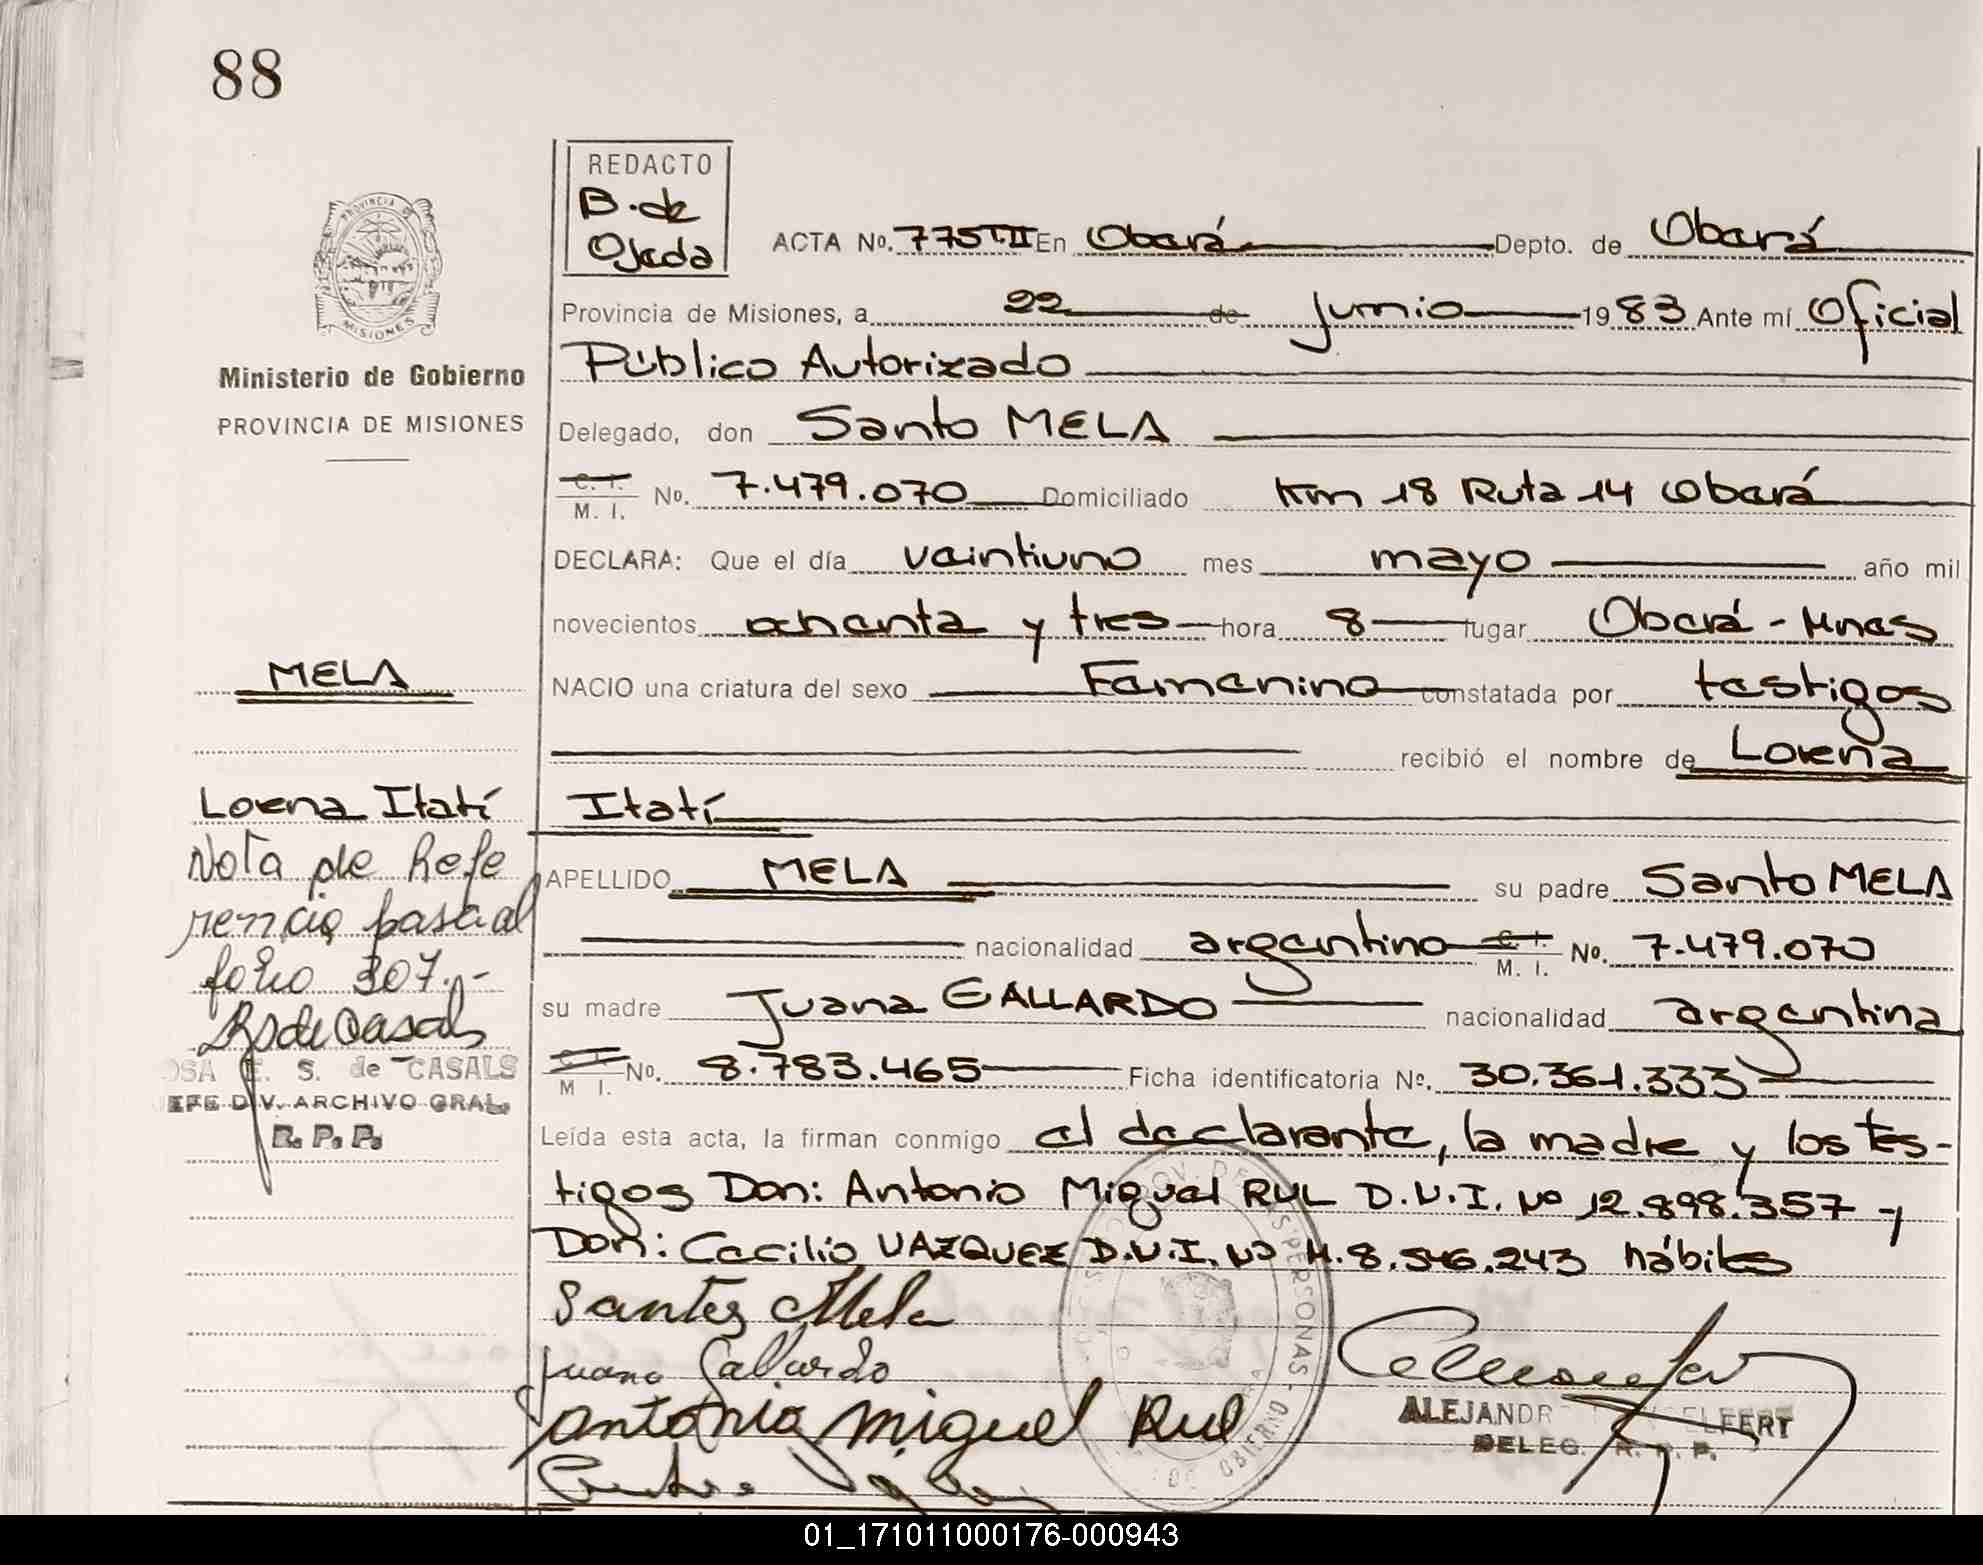 88
REDACTO
B. de
Ojeda
PROVINCIA DE
MISIONES
Ministerio de Gobierno
PROVINCIA DE MISIONES
ACTA No. 775 T.II En Oberá Depto. de Oberá
Provincia de Misiones, a 22 de junio 1983 Ante mí Oficial
Público Autorizado
Delegado, don Santo MELA
C. I.
M. I. No. 7.479.070 Domiciliado Km 18 Ruta 14 Oberá
DECLARA: Que el día veintiuno mes mayo año mil
novecientos ochenta y tres hora 8 lugar Oberá - Mnes
NACIO una criatura del sexo Femenino constatada por testigos
recibió el nombre de Lorena
Itatí
APELLIDO MELA su padre Santo MELA
nacionalidad argentino C. I.
M. I. No. 7.479.070
su madre Juana GALLARDO nacionalidad argentina
C. I.
M I. No. 8.783.465 Ficha identificatoria No. 30.361.333
Leída esta acta, la firman conmigo el declarante, la madre y los tes-
tigos Don: Antonio Miguel RUL D.N.I. Nº 12.898.357 y
Don: Cecilio VAZQUEZ D.N.I. Nº M.8.546.243 hábiles
MELA
Lorena Itatí
Nota de Refe
rencia pasa al
folio 307.-
OSA E. S. de CASALS
EFE DIV. ARCHIVO GRAL.
R. P. P.
Santos Mela
Juana Gallardo
Antonio Miguel Rul
ALEJANDR ELFERT
DELEG. R. P. P.
01_171011000176-000943